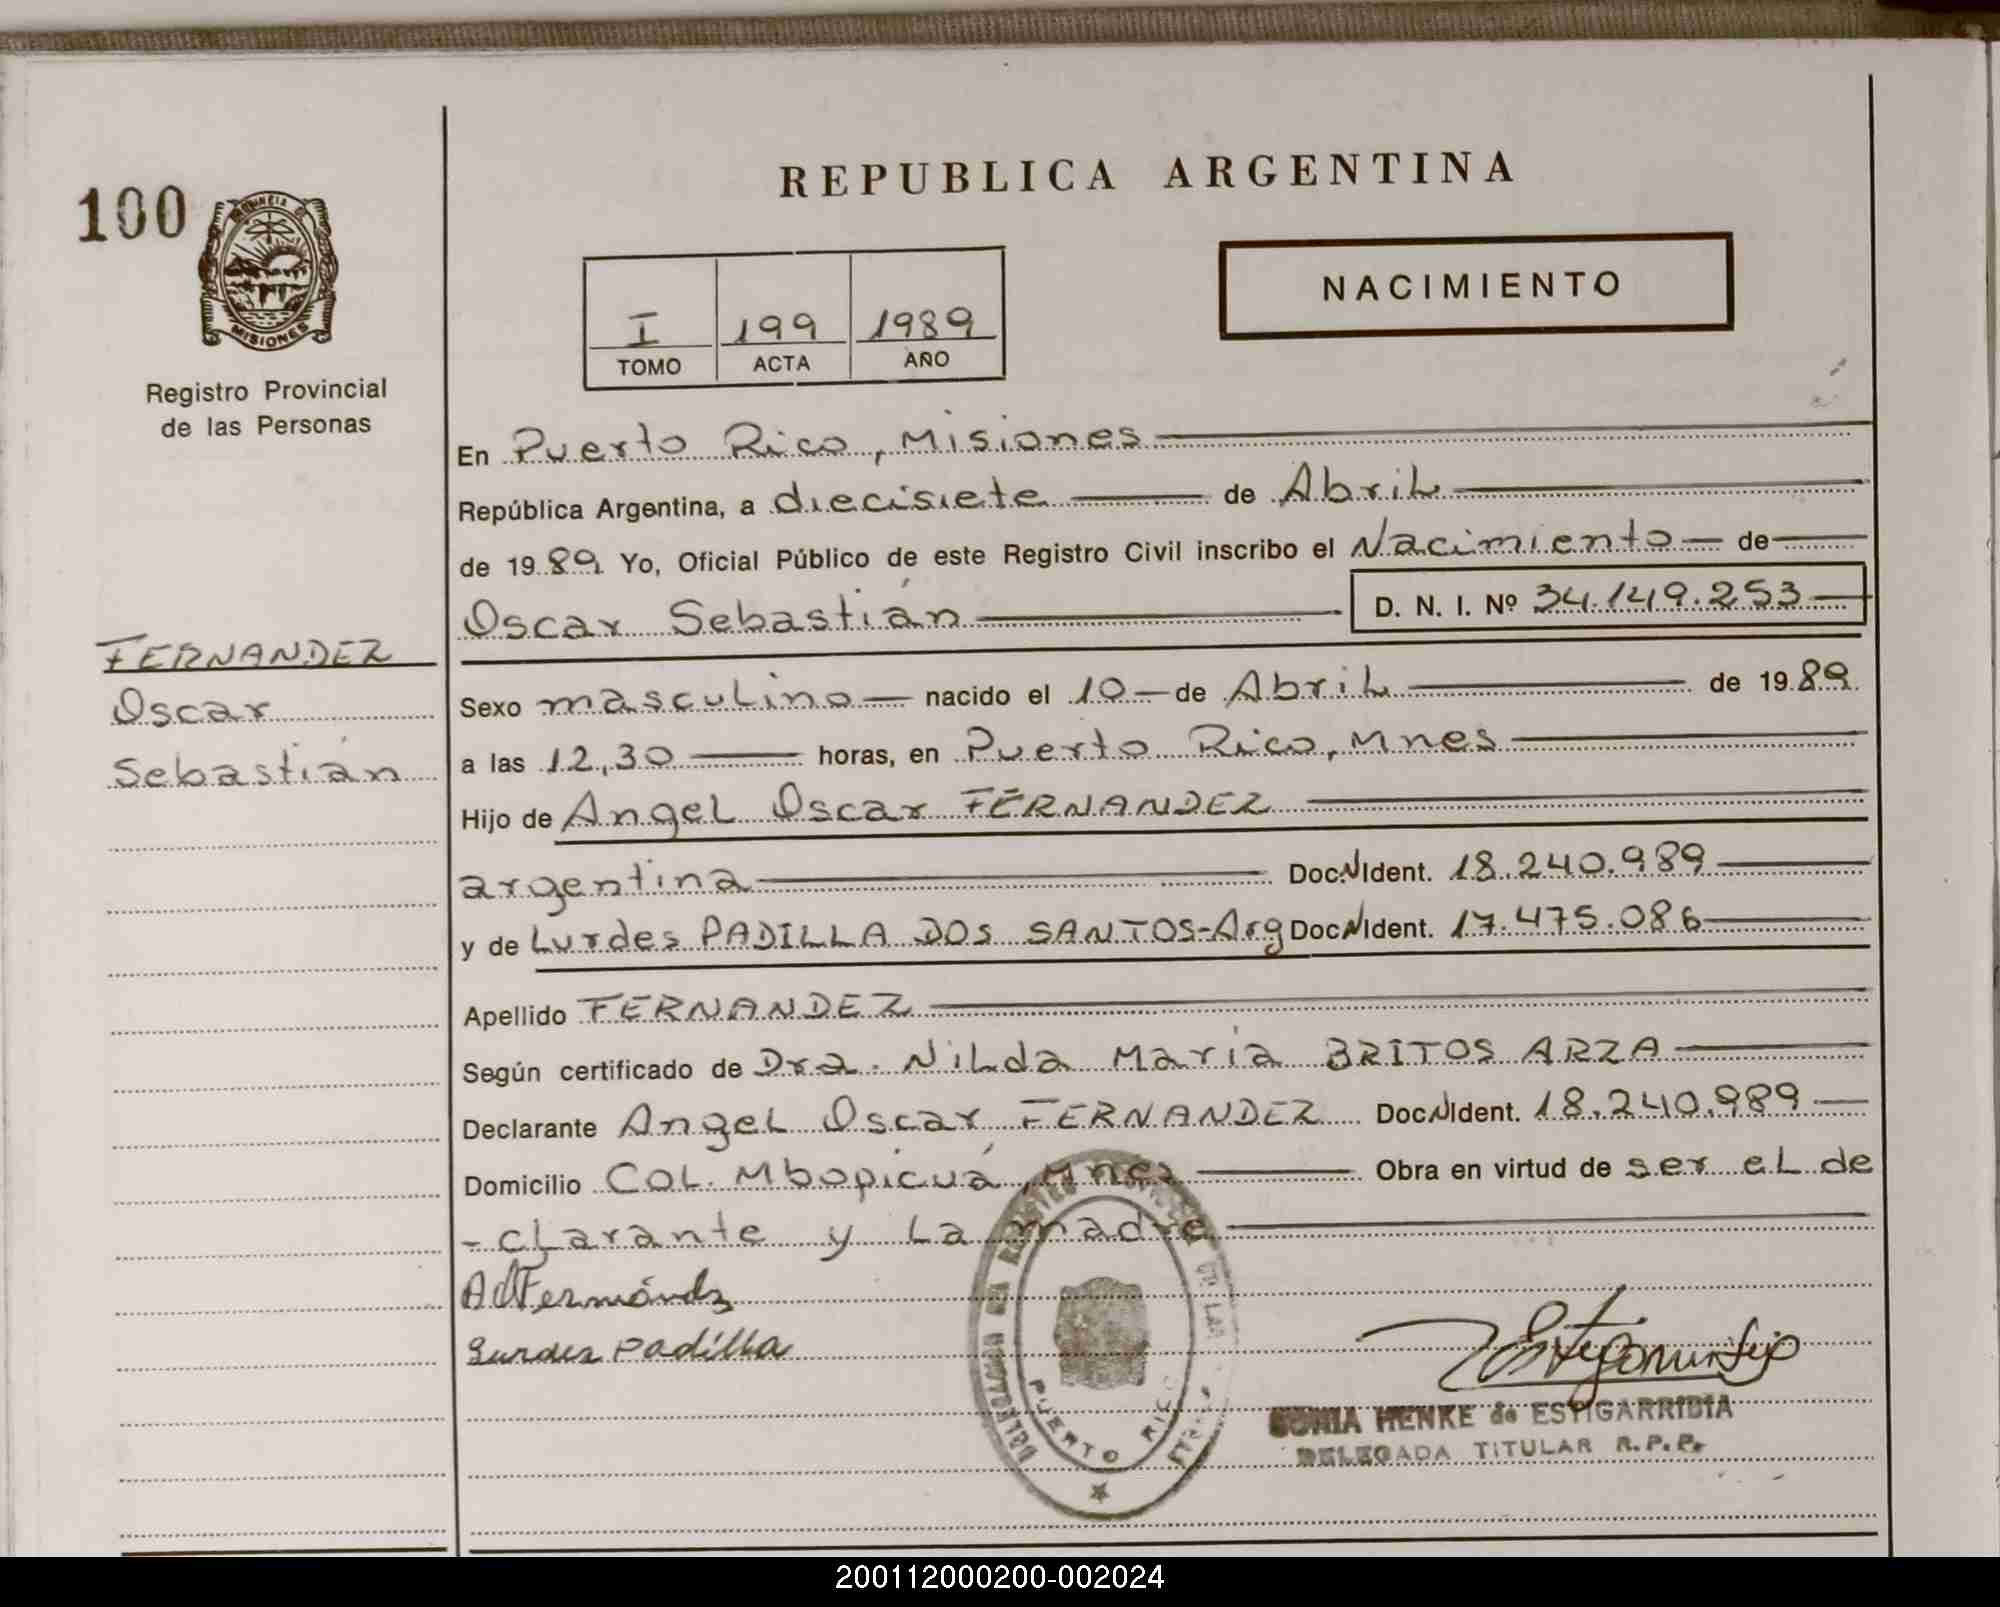 100
PROVINCIA DE
MISIONES
Registro Provincial
de las Personas
FERNANDEZ
Oscar
Sebastián
REPUBLICA ARGENTINA
NACIMIENTO
I 199 1989
TOMO ACTA AÑO
En Puerto Rico, Misiones
República Argentina, a diecisiete de Abril
de 1989 Yo, Oficial Público de este Registro Civil inscribo el Nacimiento de
Oscar Sebastián D. N. I. Nº 34.149.253
Sexo masculino nacido el 10 de Abril de 1989
a las 12,30 horas, en Puerto Rico, Mnes
Hijo de Angel Oscar FERNANDEZ
argentina Doc. N Ident. 18.240.989
y de Lurdes PADILLA DOS SANTOS-Arg Doc N Ident. 17.475.086
Apellido FERNANDEZ
Según certificado de Dra. Nilda María BRITOS ARZA
Declarante Angel Oscar FERNANDEZ Doc. N Ident. 18.240.989
Domicilio COL. Mbopicuá, Mnes Obra en virtud de ser el de
-clarante y la madre
A O Fernández
Lurdes Padilla
PUERTO RICO
SONIA HENKE de ESTIGARRIBIA
DELEGADA TITULAR R.P.P.
200112000200-002024